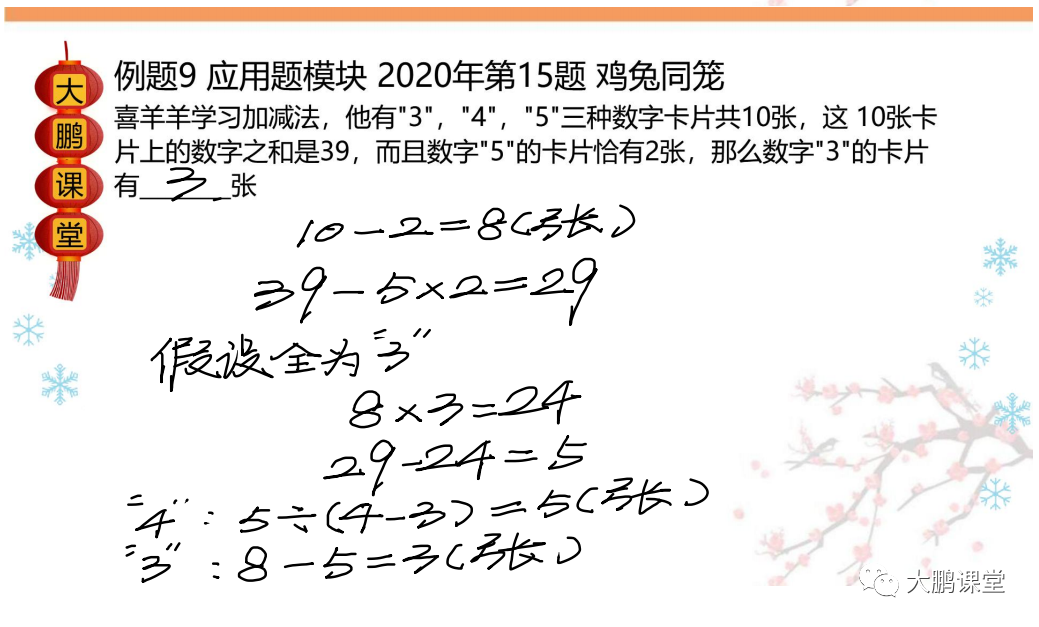 大鹏课堂
例题9 应用题模块 2020年第15题 鸡兔同笼
喜羊羊学习加减法，他有"3"，"4"，"5"三种数字卡片共10张，这 10张卡
片上的数字之和是39，而且数字"5"的卡片恰有2张，那么数字"3"的卡片
有___3___张
10-2=8(张)
39-5×2=29
假设全为"3"
8×3=24
29-24=5
"4"：5÷(4-3)=5(张)
"3"：8-5=3(张)
大鹏课堂